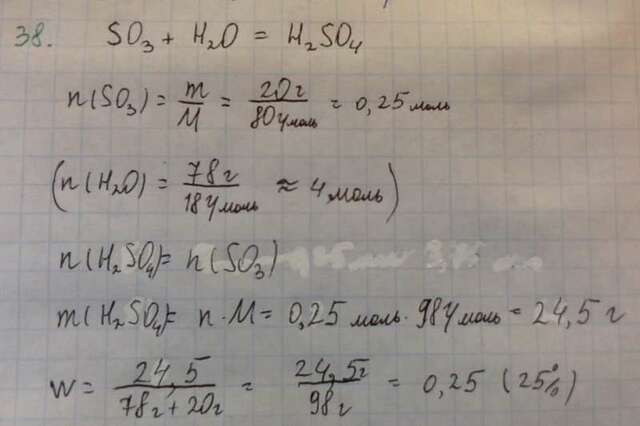 38. SO₃ + H₂O = H₂SO₄
n(SO₃) = m/M = 20г/80г/моль = 0,25 моль
(n(H₂O) = 78г/18г/моль ≈ 4 моль)
n(H₂SO₄) = n(SO₃)
m(H₂SO₄) = n·M = 0,25 моль · 98г/моль = 24,5 г
W = 24,5/78г+20г = 24,5г/98г = 0,25 (25%)